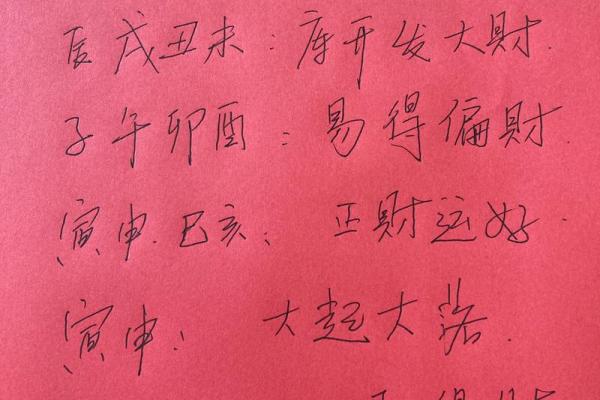 辰戌丑未：库开发大财.
子午卯酉：易得偏财.
寅申.巳亥：正财运好.
寅申：大起大落.